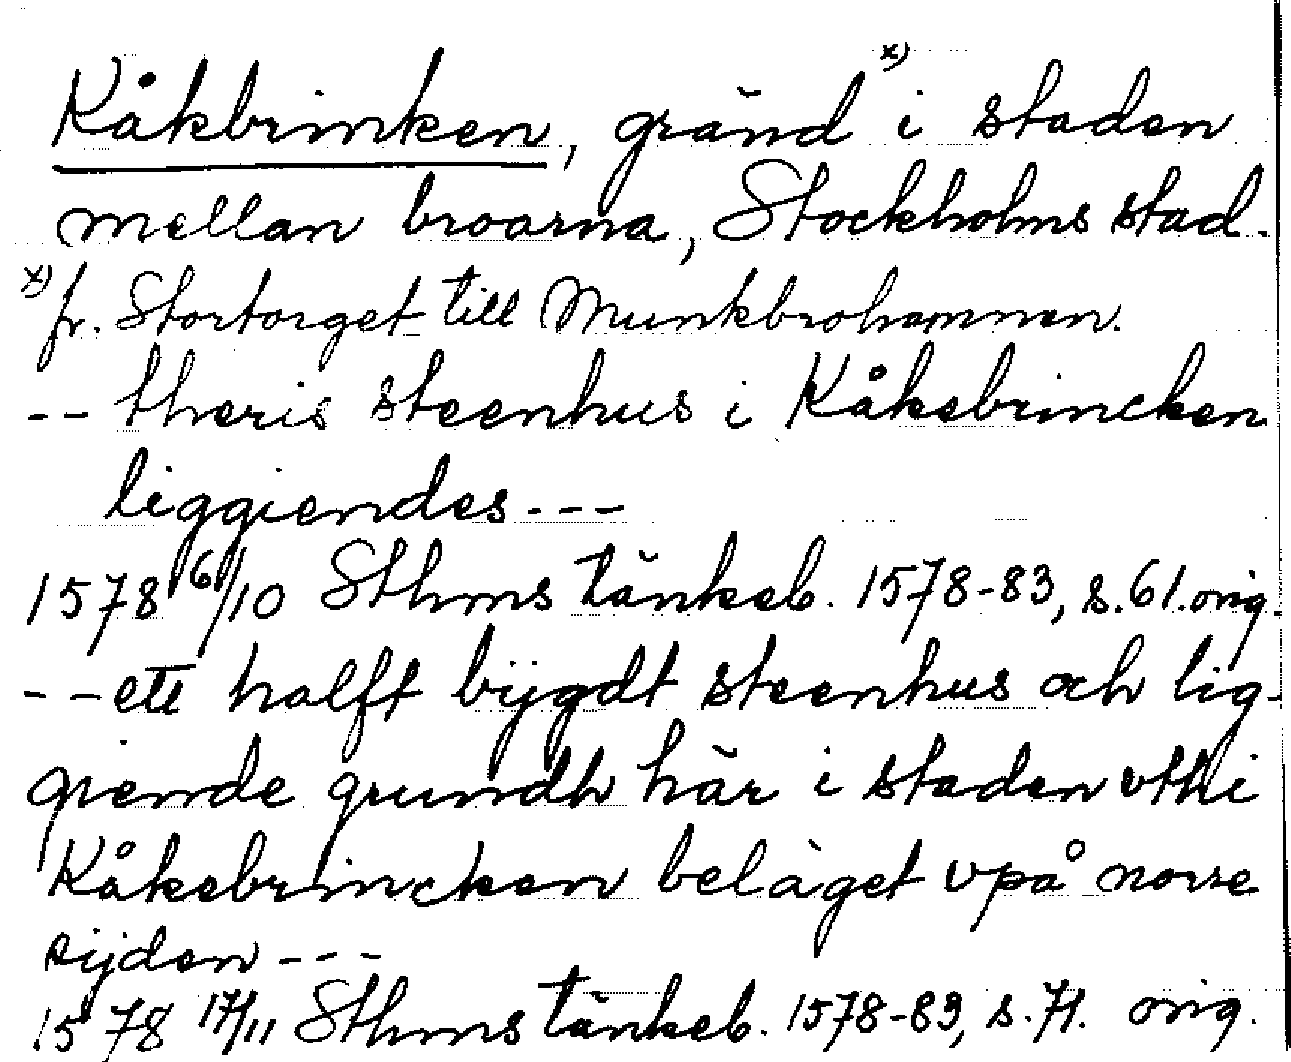 Kåkbrinken, gränd x) i staden
mellan broarna, Stockholms stad.
x) fr. Stortorget till Munkbrohamnen.
-- theris steenhus i Kåkebrincken
liggiendes ---
1578 16/10 Sthms tänkeb. 1578-83, s. 61. orig.
-- ett halfft bÿgdt steenhus och lig-
giende grundh här i staden vthi
Kåkebrincken beläget vpå norre
sijden ---
1578 17/11 Sthms tänkeb. 1578-83, s. 71. orig.